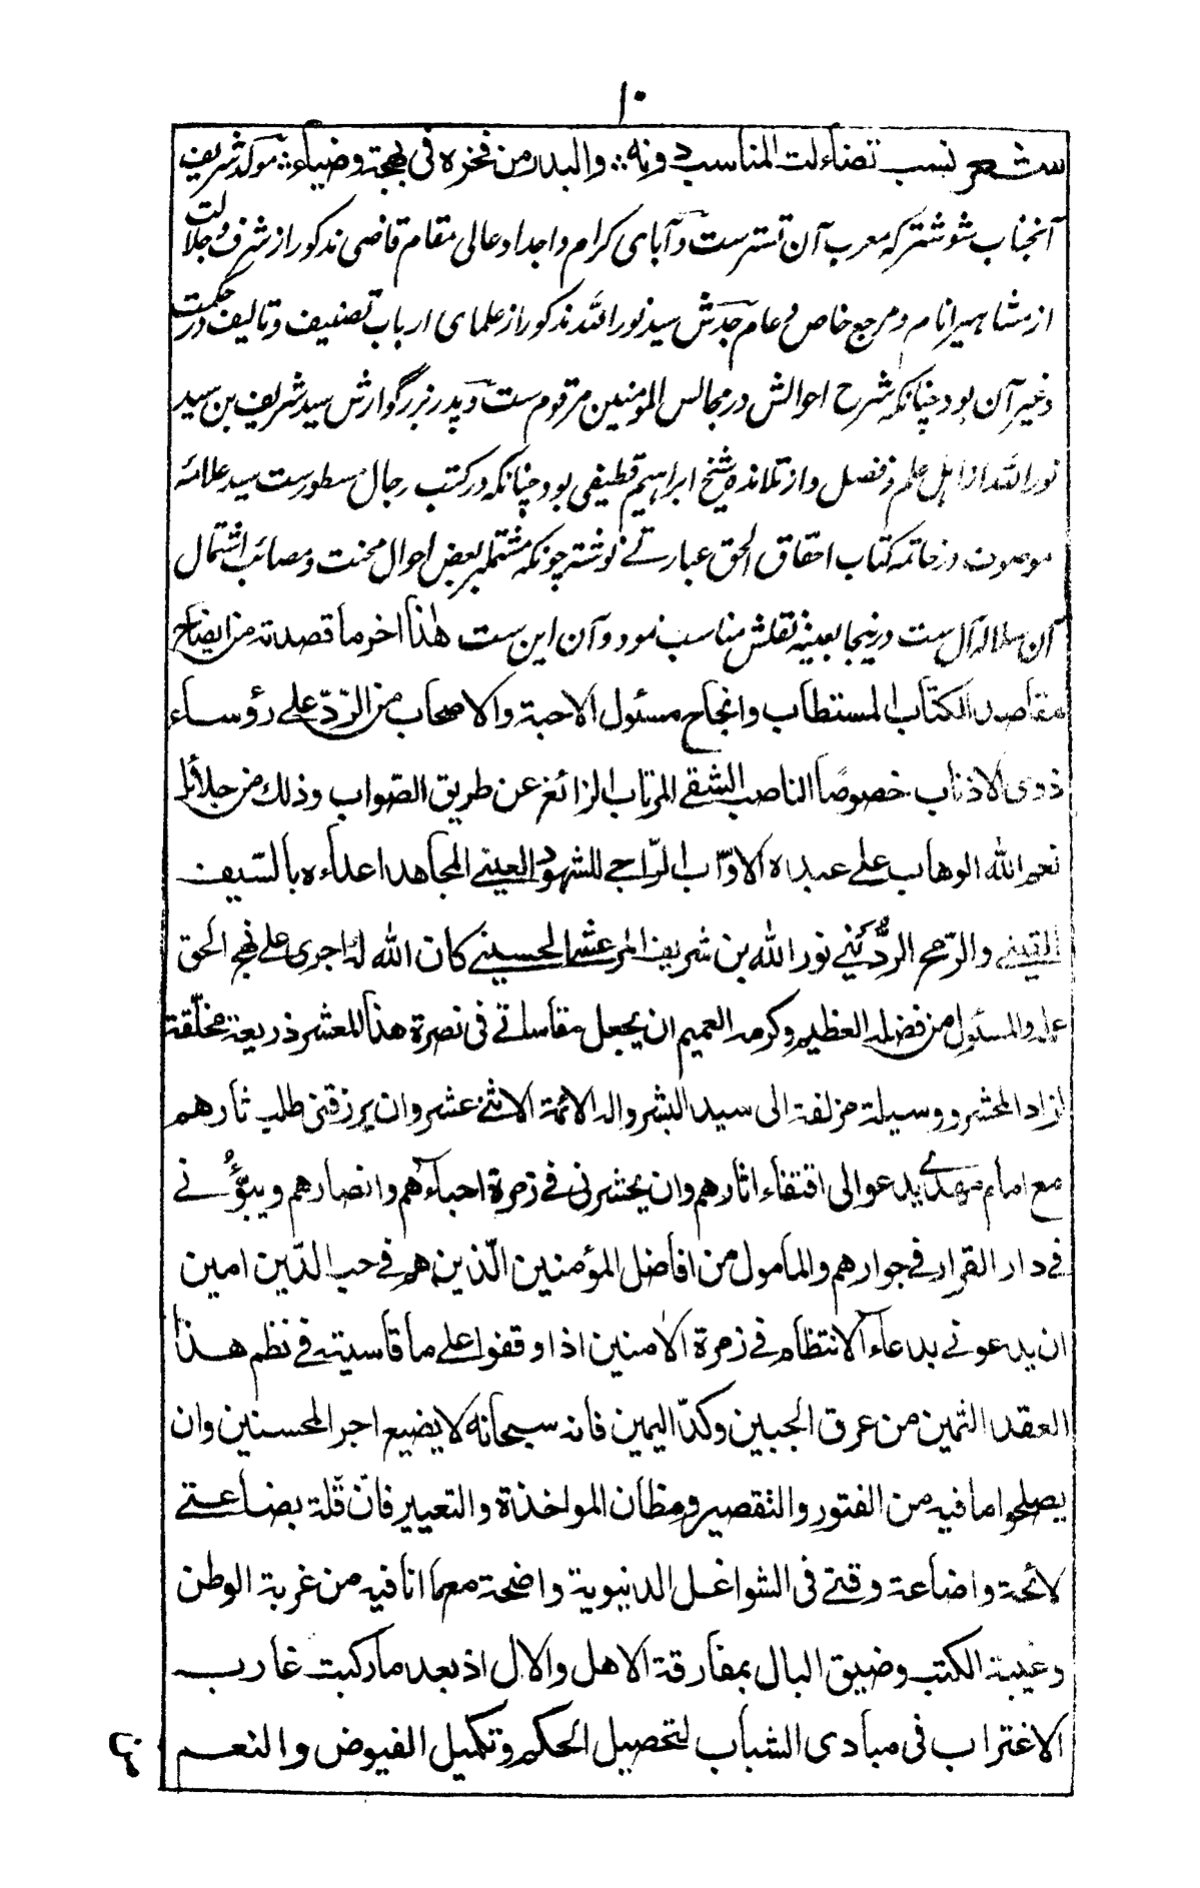 ١٠
شعر نسب تضاءلت المناسب دونه ∴ والبدر من فخره فی بهجة وضیاء ∴ مولد شریف
آنجناب شوشتر که معرب آن تستر ست وآبای کرام واجداد عالی مقام قاضی مذکور از شرف وجلالت
از مشاهیر انام ومرجع خاص وعام جدش سید نور الله مذکور از علمای ارباب تصنیف وتالیف در حکمت
وغیر آن بود چنانکه شرح احوالش در مجالس المومنین مرقوم ست وپدر بزرگوارش سید شریف بن سید
نور الله از اهل علم وفضل واز تلامذه شیخ ابراهیم قطیفی بود چنانکه در کتب رجال مسطورست سید علامه
موصوف در خاتمه کتاب احقاق الحق عبارتے نوشته چونکه مشتمل بر بعض احوال محنت ومصائب اشتمال
آن سلاله آل ست درینجا بعینه نقلش مناسب نمود وآن این ست هٰذا اخر ما قصدته من ایضاح
مقاصد الکتاب المستطاب وانجاح مسئول الاحبة والاصحاب من الرّدّ علی رؤساء
ذوی الاذناب خصوصًا الناصب الشقی المرتاب الزائغ عن طریق الصّواب وذلك من جلائل
نعم الله الوهاب علی عبده الاوّاب الرّاجی للشهود العینی المجاهد اعداءه بالسّیف
الیقینی والرّمح الرُّدَینی نور الله بن شریف المرعشی الحسینی کان الله له اجری علی نهج الحق
عمله والمسئول من فضله العظیم وکرمه العمیم ان یجعل مقاساتی فی نصرة هذا المعشر ذریعة مخلّفة
لزاد المحشر ووسیلة مزلفة الی سید البشر واله الائمة الاثنی عشر وان یرزقنی طلب ثارهم
مع امام مهدی یدعو الی اقتفاء اثارهم وان یحشرنی فی زمرة احباءهم وانصارهم ویبوّؤنی
فی دار القرار فی جوارهم والمامول من افاضل المؤمنین الّذین هم فی حب الدّین امین
ان یدعونی بدعاء الانتظام فی زمرة الامنین اذا وقفوا علی ما قاسیته فی نظم هذا
العقد الثمین من عرق الجبین وکدّ الیمین فانه سبحانه لا یضیع اجر المحسنین وان
یصلحوا ما فیه من الفتور والتقصیر ومظان المواخذة والتعییر فانّ قلّة بضاعتی
لائحة واضاعة وقتی فی الشواغل الدنیویة واضحة مع ما انا فیه من غربة الوطن
وغیبة الکتب وضیق البال بمفارقة الاهل والال اذ بعد ما رکبت غارب
الاغتراب فی مبادی الشباب لتحصیل الحکم وتکمیل الفیوض والنعم